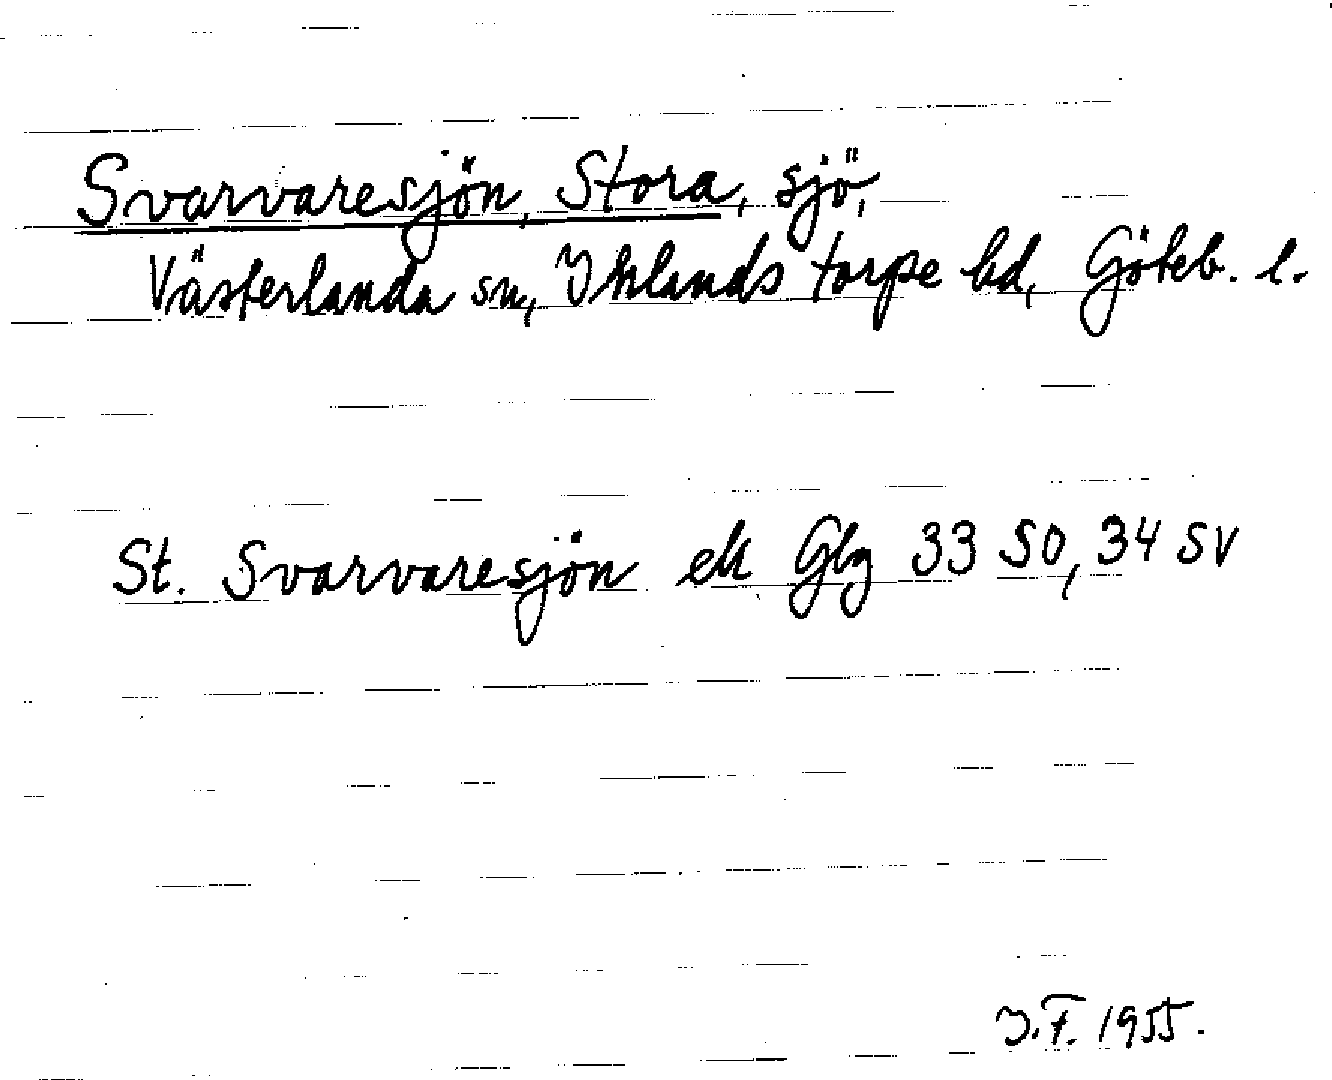 Svarvaresjön, Stora, sjö,
Västerlanda sn, Inlands torpe hd, Göteb. l.
St. Svarvaresjön ek Gbg 33 SO, 34 SV
J.F. 1955.